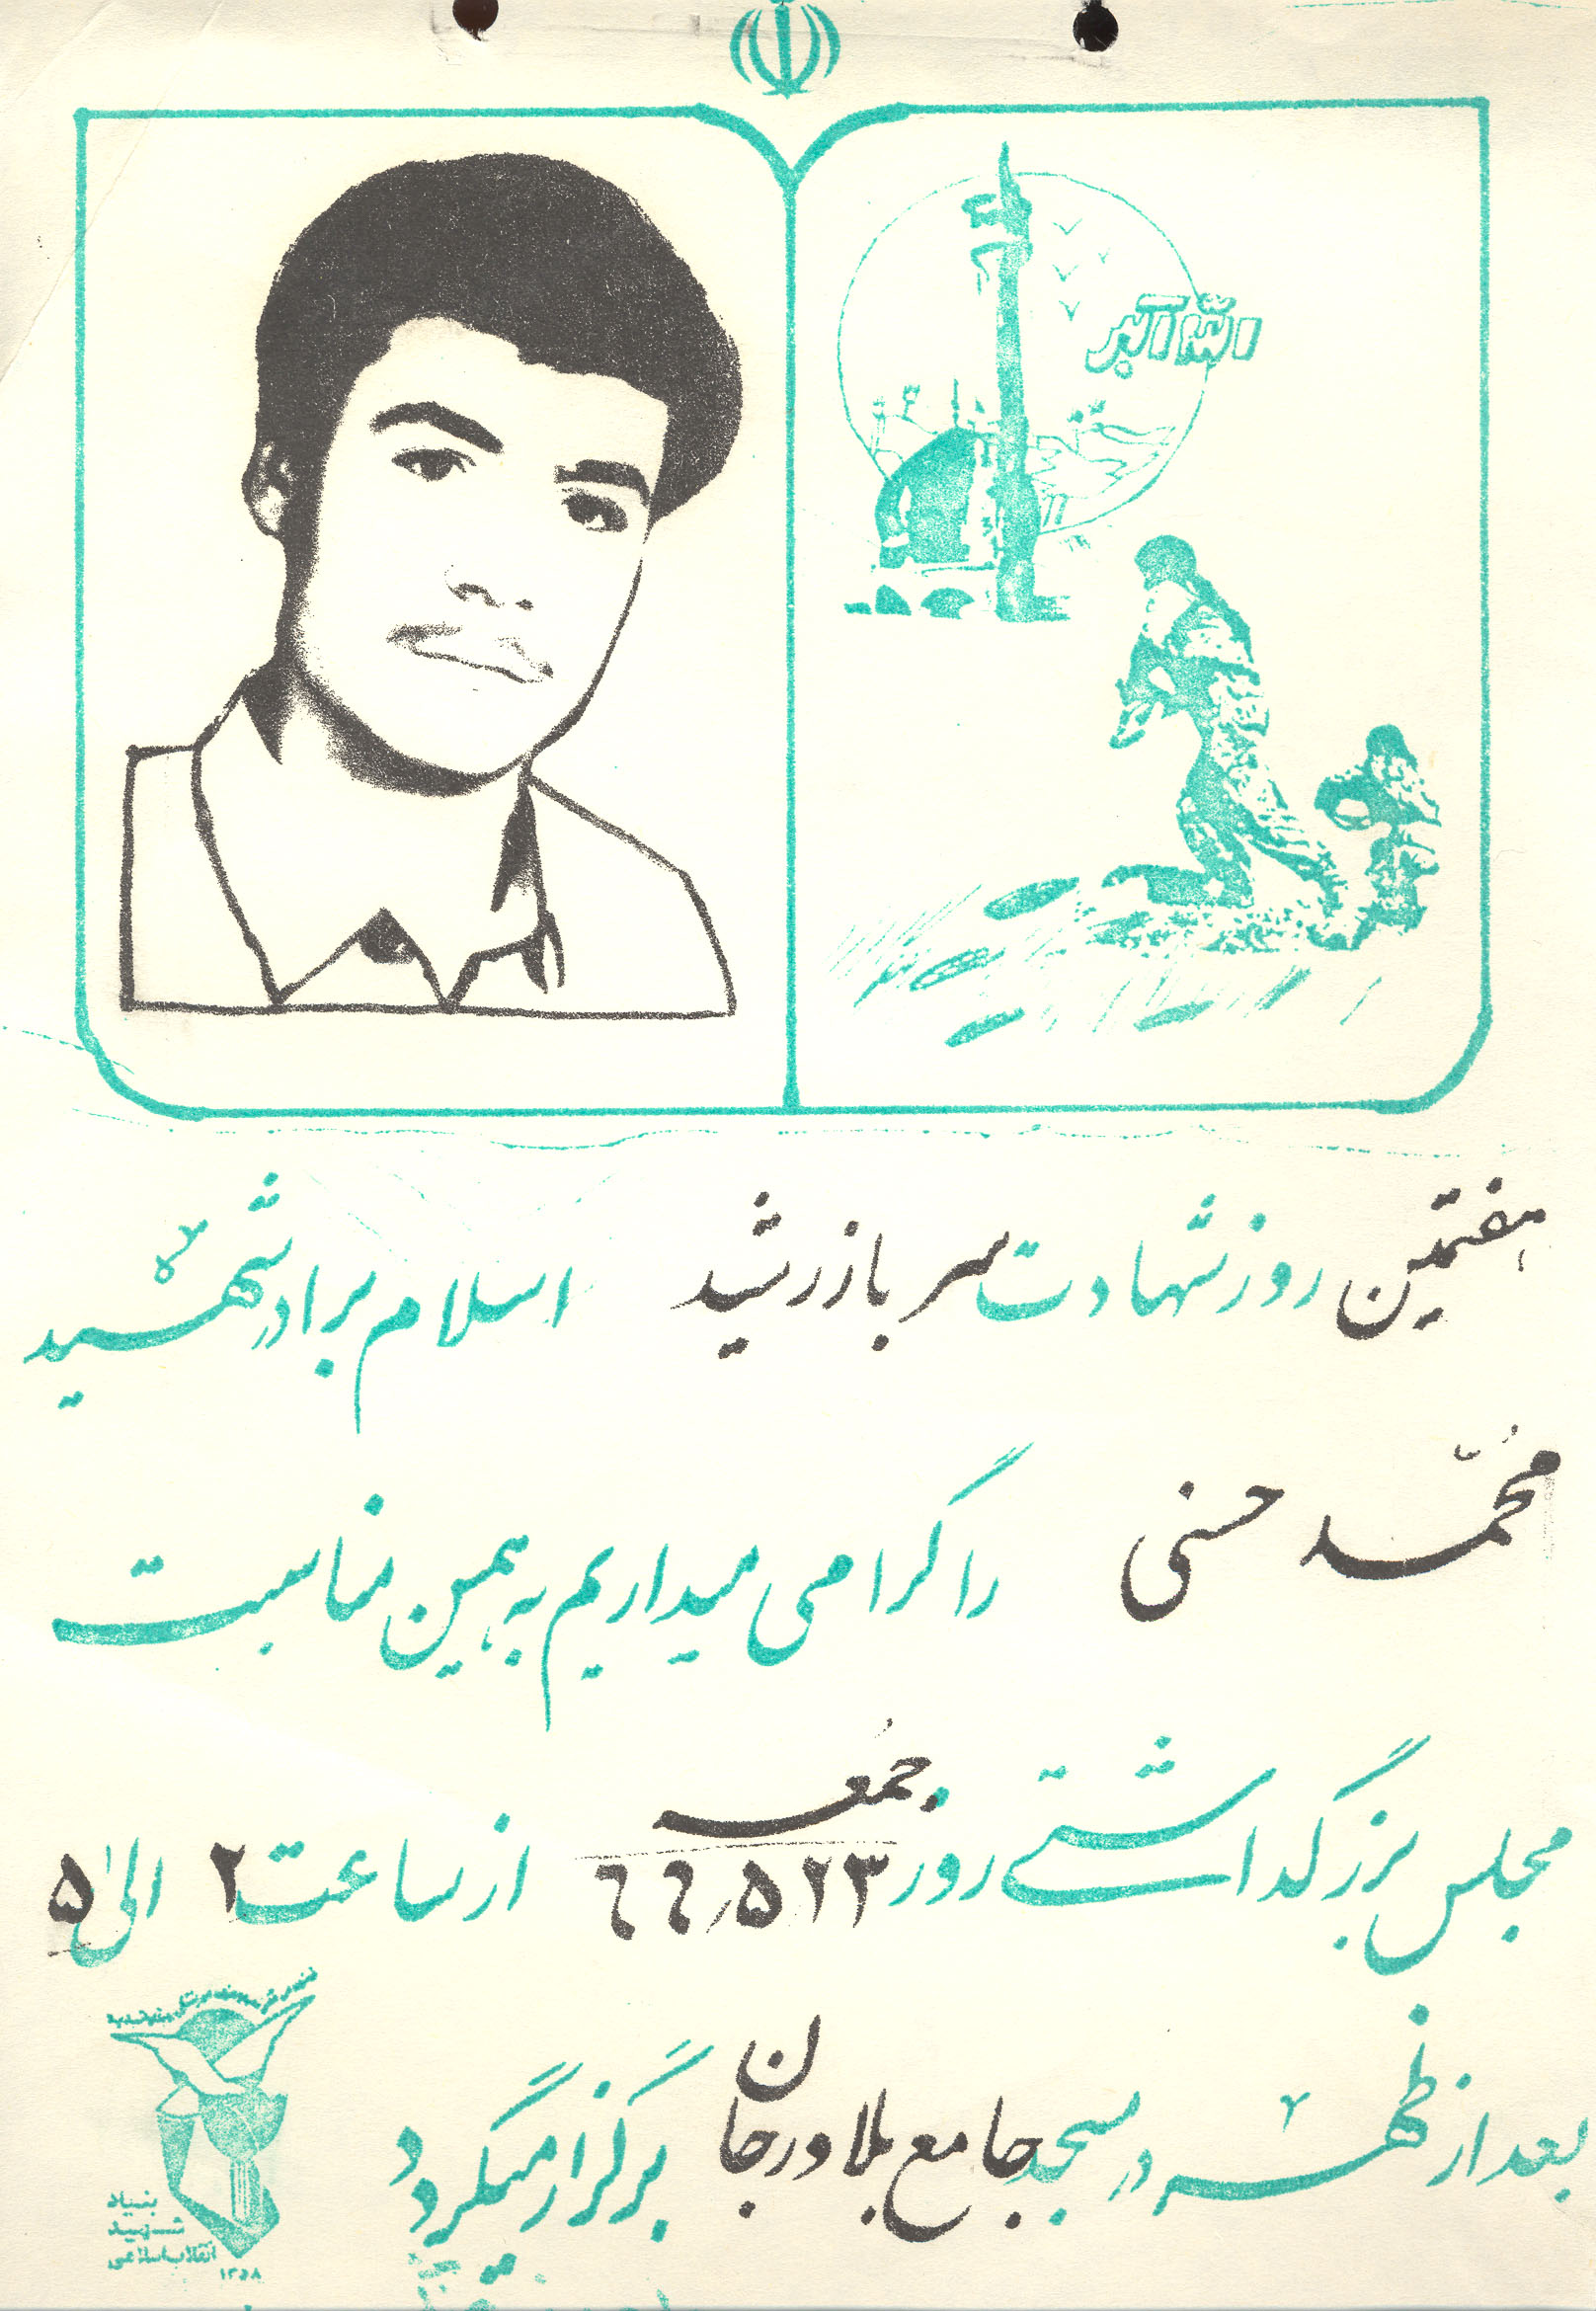 الله اکبر
هفتمین روز شهادت سرباز رشید اسلام برادر شهید
محمّد حسنی را گرامی میداریم به همین مناسبت
مجلس بزرگداشتی روز جمعه
۶۶٫۵٫۲۳ از ساعت ۲ الی ۵
بعد از ظهر در مسجد جامع بلاورجان برگزار میگردد
بنیاد
شهید
انقلاب اسلامی
۱۳۵۸